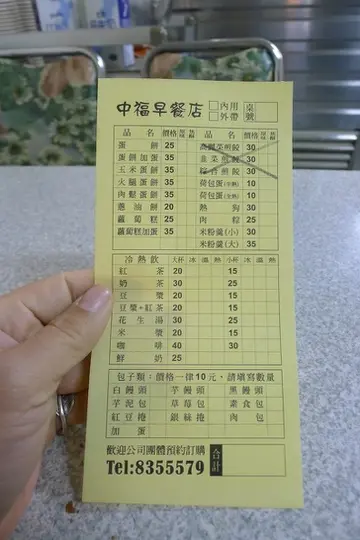 中福早餐店 □內用 □外帶 桌號
品名 價格 品名 價格
蛋餅 25 高麗菜煎餃 30
蛋餅加蛋 35 韭菜煎餃 30
玉米蛋餅 35 綜合煎餃 30
火腿蛋餅 35 荷包蛋(全熟) 10
肉鬆蛋餅 35 荷包蛋 10
蔥油餅 20 熱狗 30
蘿蔔糕 25 肉粽 25
蘿蔔糕加蛋 35 米粉羹(小) 30
米粉羹(大) 35
冷熱飲 大杯 冰 溫 熱 小杯 冰 溫 熱
紅茶 20 15
奶茶 30 25
豆漿 20 15
豆漿+紅茶 20 15
花生湯 30 25
米漿 20 15
咖啡 40 30
鮮奶 25
包子類:價格一律10元,請填寫數量
白饅頭 芋饅頭 黑饅頭
芋泥包 草莓包 素食包
紅豆捲 銀絲捲 肉包
加蛋
歡迎公司團體預約訂購
Tel:8355579 合計